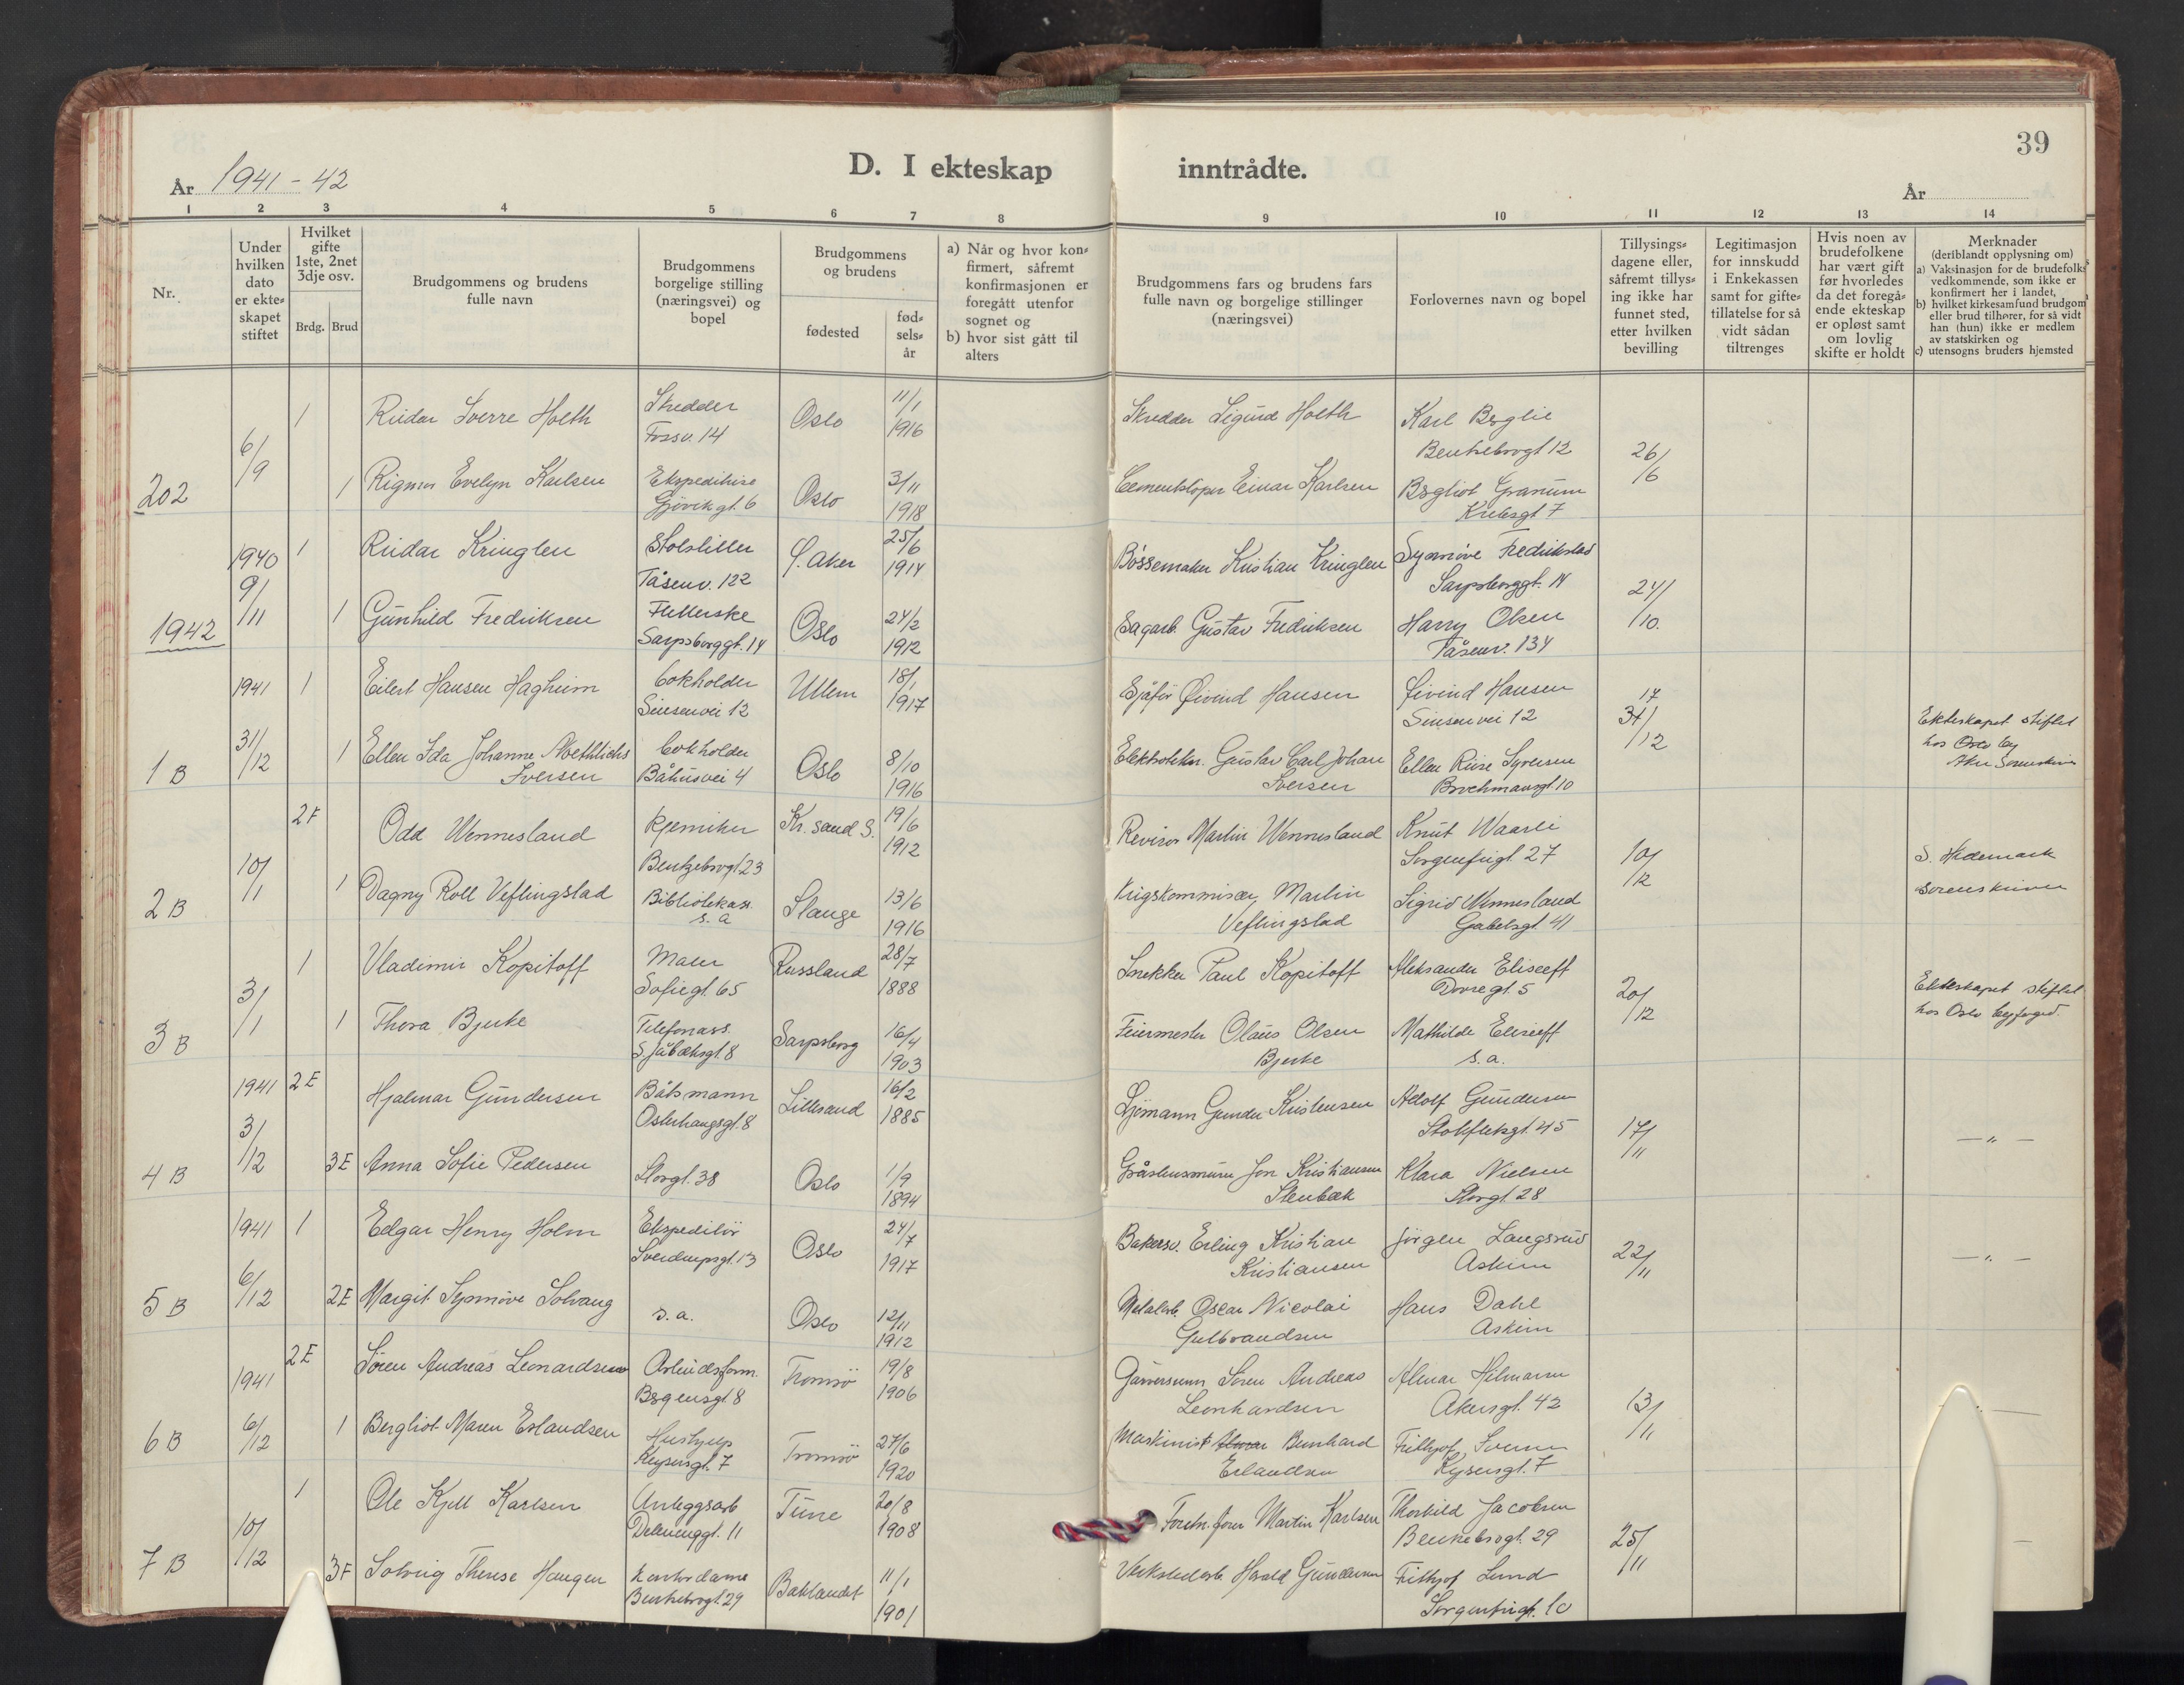 39
D. I ekteskap inntrådte.
År 1941-42
År
1 2 3 4 5 6 7 8 9 10 11 12 13 14
Nr.
Under
hvilken
dato
er ekte=
skapet
stiftet
Hvilket
gifte
1ste, 2net
3dje osv.
Brdg. Brud
Brudgommens og brudens
fulle navn
Brudgommens
borgelige stilling
(næringsvei) og
bopel
Brudgommens
og brudens
fødested
fød=
sels=
år
a) Når og hvor kon=
firmert, såfremt
konfirmasjonen er
foregått utenfor
sognet og
b) hvor sist gått til
alters
Brudgommens fars og brudens fars
fulle navn og borgelige stillinger
(næringsvei)
Forlovernes navn og bopel
Tillysings=
dagene eller,
såfremt tillys=
ing ikke har
funnet sted,
etter hvilken
bevilling
Legitimasjon
for innskudd
i Enkekassen
samt for gifte=
tillatelse for så
vidt sådan
tiltrenges
Hvis noen av
brudefolkene
har vært gift
før hvorledes
da det foregå=
ende ekteskap
er opløst samt
om lovlig
skifte er holdt
Merknader
(deriblandt opplysning om)
a) Vaksinasjon for de brudefolks
vedkommende, som ikke er
konfirmert her i landet,
b) hvilket kirkesamfund brudgom
eller brud tilhører, for så vidt
han (hun) ikke er medlem
av statskirken og
c) utensogns bruders hjemsted
202
6/9
1
Reidar Sverre Holth
Skredder
Fossv. 14
Oslo
11/1
1916
Skredder Sigurd Holth
Karl Berglie
Bentsebrogt 12
26/6
1
Rigmor Evelyn Karlsen
Ekspeditrise
Gjøvik gt. 6
Oslo
3/11
1918
Einar Karlsen
Bergliot Granum
7
1942
1940
9/11
1
Reidar Kringlen
Tåsenv. 122
Ø. Aker
25/6
1914
Bøssemaker Kristian Kringlen
Synnøve Fredrikstad
Sarpsborggt. 14
24/10.
1
Gunhild Fredriksen
Sarpsborggt. 14
Oslo
24/2
1912
Sagarb. Gustav Fredriksen
Harry Olsen
Tåsenv. 134
1 B
1941
31/12
1
Eilert Hansen Hagheim
bokholder
Sinsenvei 12
18/1
1917
Sjåfør Øivind Hansen
Øivind Hansen
Sinsenvei 12
17
31/12
1
Ellen Ida Johanne
Iversen
bokholder
Båhusvei 4
Oslo
8/10
1916
Gustav Carl Johan
Iversen
Ellen Syversen
Brochmansgt. 10
Ekteskapet stiftet
hos Oslo by
Aker Sorenskriver
2 B
10/1
2F
Odd Wennesland
Kjemiker
Bentzebrogt. 23
Kr. sand S.
19/6
1912
Revisor Martin Wennesland
Knut Waarli
Sorgenfrigt 27
10/12
S. Hedemark
sorenskriver
1
Dagny Roll Veflingstad
Bibliotekass.
s. a
Stange
13/6
1916
Krigskommisær Martin
Veflingstad
Sigrid Wennesland
Gabelsgt. 41
3 B
3/1
1
Vladimir Kopitoff
Maler
Sofiegt. 65
Russland
28/7
1888
Snekker Paul Kopitoff
Aleksander Eliseeff
Dovregt. 5
20/12
Ekteskapet stiftet
hos Oslo byfogd.
1
Thora Bjerke
Telefonass.
8
Sarpsborg
16/4
1903
Feiermester Olaus Olsen
Bjerke
Mathilde Eliseeff
s. a.
4 B
1941
3/12
2E
Hjalmar Gundersen
Båtsmann
Osterhausgt. 8
Lillesand
16/2
1885
Sjømann Gunder Kristensen
Adolf Gundersen
Stokfletsgt. 45
17/11
— " —
3E
Anna Sofie Pedersen
Storgt. 38
Oslo
1/9
1894
Gråstensmurer Jon Kristiansen
Stenbæk
Klara Nielsen
Storgt. 28
5 B
1941
6/12
1
Edgar Henry Holm
Ekspeditør
Sverdrupsgt. 13
Oslo
24/7
1917
Bakersv. Erling Kristian
Kristiansen
Jørgen Langsrud
Askim
22/11
— " —
2E
Margit Synnøve Solvang
s. a.
Oslo
12/11
1912
Metalarb. Oscar Nicolai
Gulbrandsen
Hans Dahl
Askim
6 B
1941
6/12
2E
Søren Andreas Leonardsen
Arbeidsform.
8
Tromsø
19/8
1906
Garversvenn Søren Andreas
Leonhardsen
Almar Hilmarm
Akersgt. 42
13/11
1
Bergliot Maren Erlandsen
Hushjelp
Keysersgt. 7
Tromsø
27/6
1920
Maskinist Bernhard
Erlandsen
Frithjof Svensen
Kysersgt. 7
7 B
10/12
1
Ole Kjell Karlsen
Anleggsarb
Delenenggt. 11
Tune
20/8
1908
Martin Karlsen
Thorkild Jacobsen
Bentsebrogt. 29
25/11
3F
Solveig Therese Haugen
Kontordame
Bentsebrogt. 29
Baklandet
11/1
1901
Verkstedarb. Harald Gundersen
Frithjof Lund
Sorgenfrigt. 10